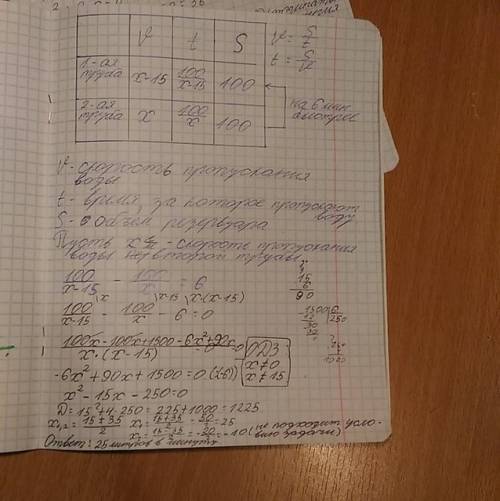 V t S
V = S/t
t = S/V
1-ая труба x-15 100/(x-15) 100
2-ая труба x 100/x 100
на 6 мин быстрее
V - скорость пропускания
воды
t - время, за которое пропускают
воду
S - объём резервуара
Пусть x - скорость пропускания
воды второй трубы
100/(x-15) - 100/x = 6
\x \x-15 \x·(x-15)
100/(x-15) - 100/x - 6 = 0
(100x-100x+1500-6x²+90x)/(x·(x-15)) = 0
ОДЗ
x≠0
x≠15
-6x²+90x+1500=0 (:(-6))
x²-15x-250=0
D=15²+4·250=225+1000=1225
x₁,₂=(15±35)/2 x₁=(15+35)/2=50/2=25
x₂=(15-35)/2=-20/2=-10 (не подходит усло-
вию задачи)
Ответ: 25 литров в минуту
15
6
90
1500 6
12 250
30
30
0